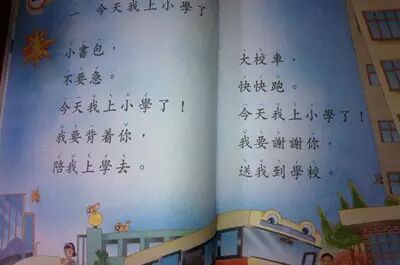 一 今天我上小學了
小書包，
不要急。
今天我上小學了！
我要背着你，
陪我上學去。
大校車，
快快跑。
今天我上小學了！
我要謝謝你，
送我到學校。